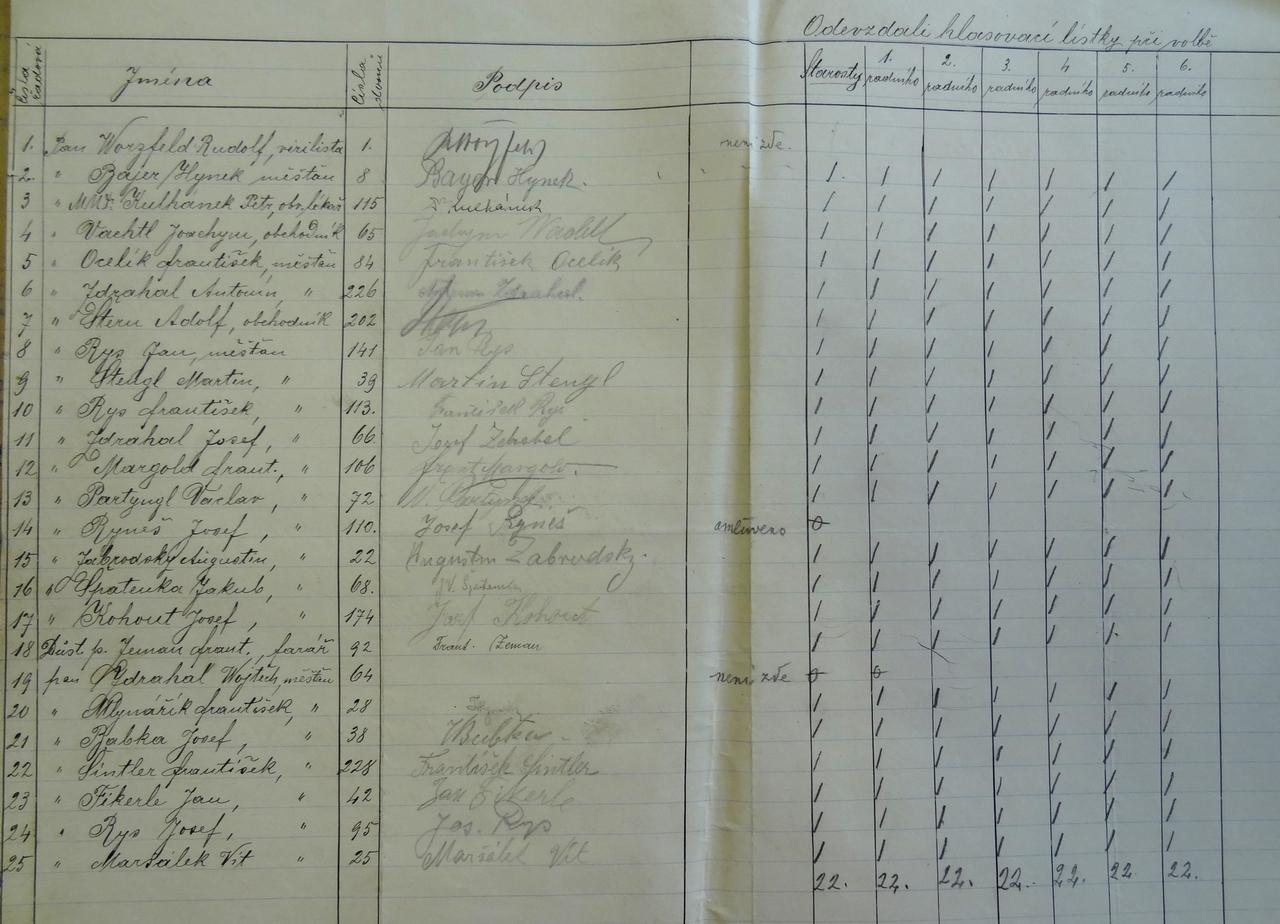 Odevzdali hlasovací lístky při volbě
čísla řadová Jména čísla domů Podpis Starosty 1. radního 2. radního 3. radního 4 radního 5. radního 6. radního
1. Pan Worzfeld Rudolf, virilista 1. není zde.
2. " Bajer Hynek měšťan 8 Bayer Hynek. / / / / / / /
3 " MUDr. Kulhánek Petr, obv. lékař 115 Kulhánek / / / / / / /
4 " Vachtl Joachym, obchodník 65 Joachym / / / / / / /
5 " Ocelík František, měšťan 84 František Ocelík / / / / / / /
6 " Zdrahal Antonín, " 226 Zdrahal. / / / / / / /
7 " Stern Adolf, obchodník 202 / / / / / / /
8 " Rys Jan, měšťan 141 Jan Rys / / / / / / /
9 " Stengl Martin, " 39 Martin Stengl / / / / / / /
10 " Rys František, " 113. František Rys / / / / / / /
11 " Zdrahal Josef, " 66. Josef / / / / / / /
12 " Margold Frant., " 106 Frant Margold. / / / / / / /
13 " Partyngl Václav, " 72 / / / / / / /
14 " Ryneš Josef, " 110. Josef Ryneš omluveno 0
15 " Zabrodský Augustin, " 22 Augustin Zabrodský. / / / / / / /
16 " Špatenka Jakub, " 68. / / / / / / /
17 " Kohout Josef, " 174 Josef Kohout / / / / / / /
18 Důst. p. Zeman Frant., farář 92 Frant. Zeman / / / / / / /
19 pan Zdrahal Wojtěch, měšťan 64 není zde 0 0
20 " Mlynářík František, " 28 / / / / / / /
21 " Babka Josef, " 38 / / / / / / /
22 " Šintler František, " 228 František Šintler / / / / / / /
23 " Fikerle Jan, " 42 Jan Fikerle / / / / / / /
24 " Rys Josef, " 95 Jos. Rys / / / / / / /
25 " Maršálek Vít " 25 Maršálek Vít / / / / / / /
22. 22. 22. 22. 22. 22 22.